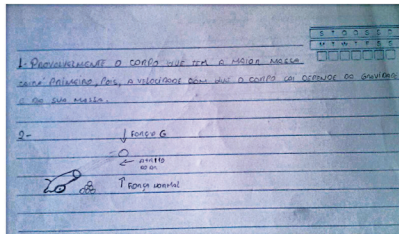 1- Provavelmente o corpo que tem a maior massa
cairá primeiro, pois, a velocidade com que o corpo cai depende da gravidade
e da sua massa.
2-
↓ Força G
← Atrito
do ar
↑ Força normal